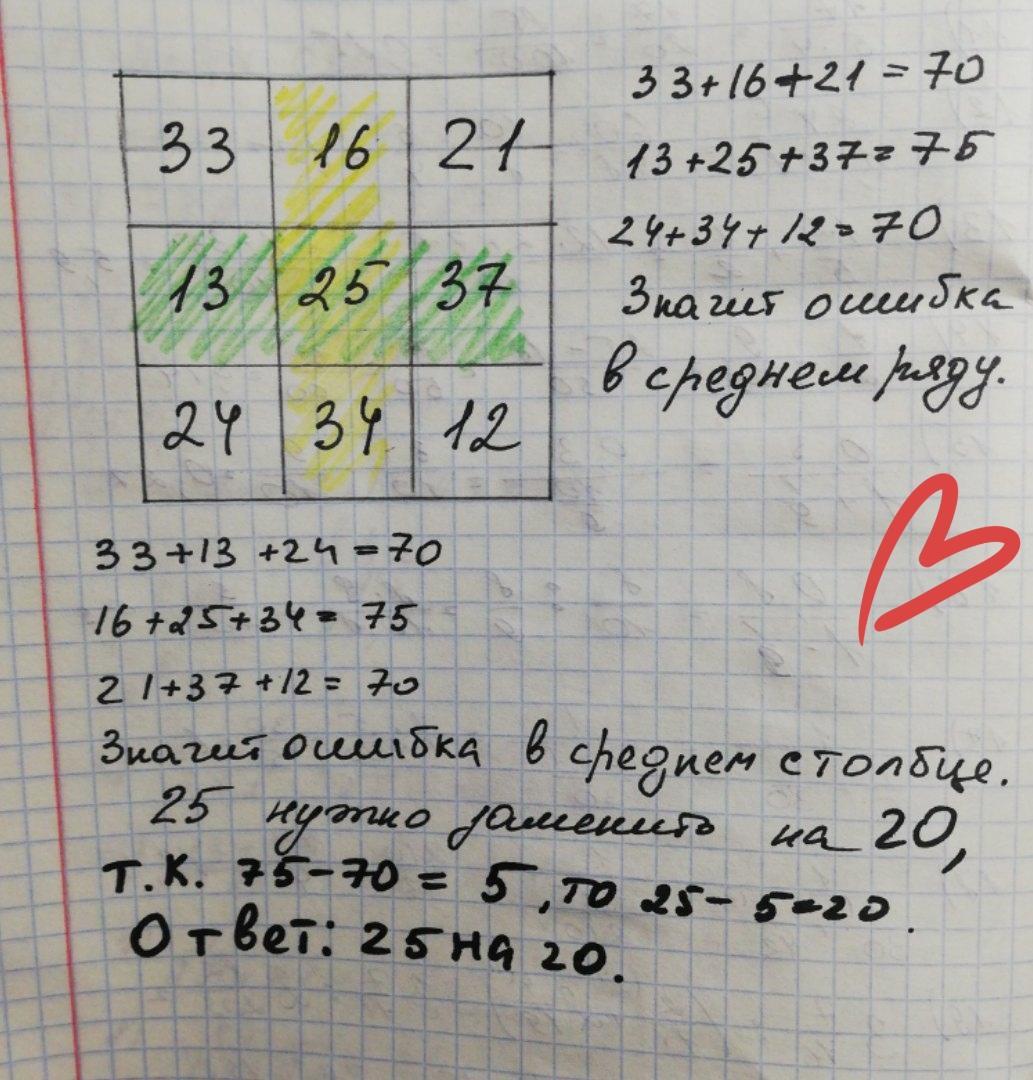 33 16 21
13 25 37
24 34 12
33+16+21=70
13+25+37=75
24+34+12=70
Значит ошибка
в среднем ряду.
33+13+24=70
16+25+34=75
21+37+12=70
Значит ошибка в среднем столбце.
25 нужно заменить на 20,
т.к. 75-70=5, то 25-5=20.
Ответ: 25 на 20.